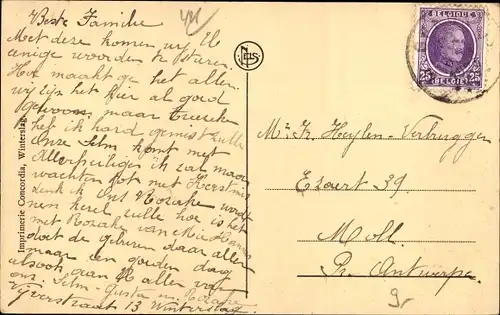 Beste Familie
Met deze komen wij U
eenige woorden te sturen.
Hoe maakt ge het allen
wij zijn het hier al goed
gewoon. maar
heb ik hard gemest zulle
onze Selm komt met
Allerheiligen ik zal maar
wachten tot met Kerstmis
denk ik Ons Rozake wordt
nen kerel zulle hoe is het
met Rozake van Mie
doet de geburen daar allen
maar een goeden dag
alsook aan U allen van
ons. Selm - Gusta en
Vijverstraat 13 Winterslag
421
Imprimerie Concordia, Winterslag
NELS
BELGIQUE
25 25
BELGIË
Mr. Fr. Heylen-Verbruggen
Ezaert 39.
Moll.
Pr. Antwerpen